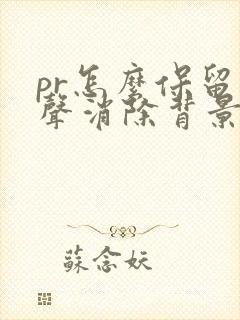 pr怎麼保留
聲消除背景
蘇念妖